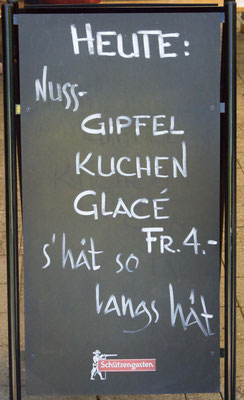 HEUTE:
Nuss-
GIPFEL
KUCHEN
GLACÉ
FR. 4.-
s'hät so
langs hät
Schützengarten